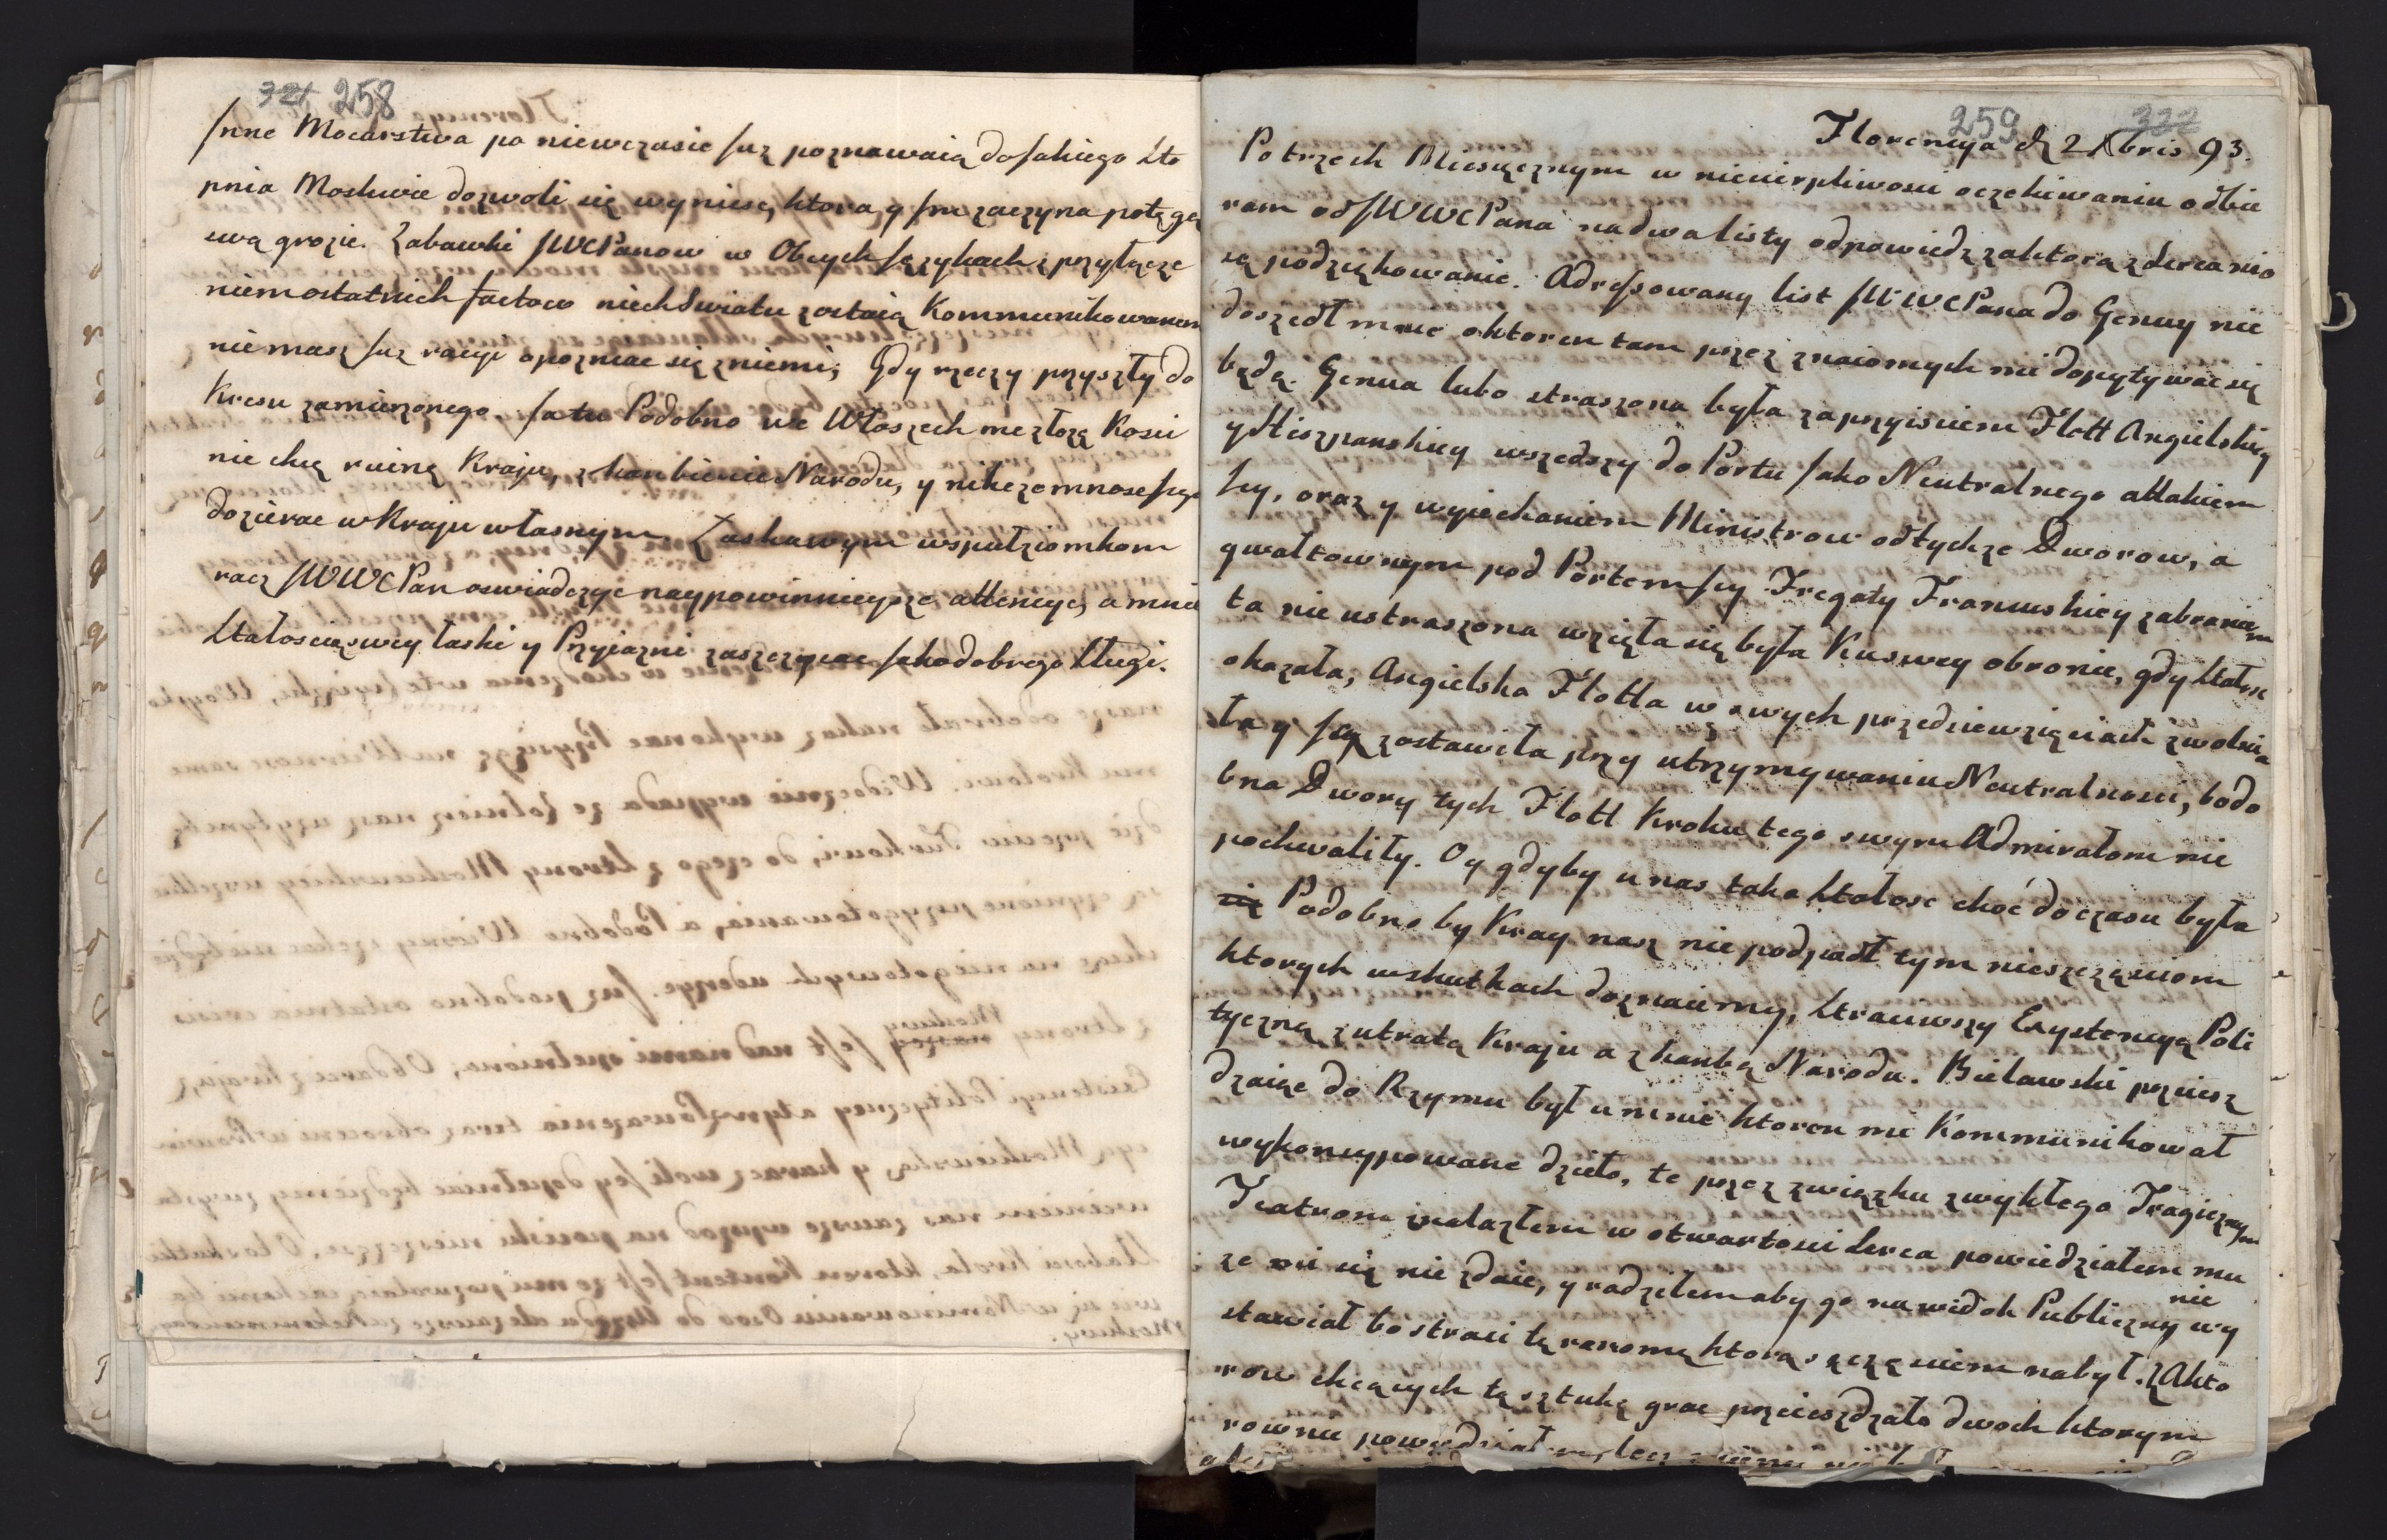 321 258
Jnne Mocarstwa po niewczasie Juz poznawaią do Jakiego Sto
pnia Moskwie dozwoli się wyniesc, ktora y Jm zaczyna potęgą
swą grozic. Zabawki JWWCPanow w Obcych Językach z przyłącze
niem ostatnich factow niech Swiatu zostaią Kommunikowanem
nie masz Juz racyi opozniac się z niemi; Gdy rzeczy przyszły do
Kresu zamierzonego. Ja tu Podobno we Włoszech me złozę Kosci
nie chcę ruinę Kraju, z hanbienie Narodu, y nikczemnosc Jego
dozierac w Kraju własnym. Łaskawym wspułziomkom
racz JWWCPan oswiadczyc naypowinnieysze attencye, a mnie
Stałoscią swey łaski y Przyiazni zaszczycac Jako dobrego Sługi.
259 322
Florencya d 2 Xbris 93.
Po trzech Miesięcznym w niecierpliwosci oczekiwaniu odbie
ram od JWWCPana na dwa listy odpowiedz za ktorą z serca nio
są podziękowanie. Adressowany list JWWCPana do Genuy nie
doszedł mnie o ktoren tam przez znaiomych nie dopytywac się
będą. Genua lubo straszona była za przyisciem Flott Angielskiey
y Hiszpanskiey wszedszy do Portu Jako Neutralnego attakiem
Jey, oraz y wyiechaniem Ministrow od tychze Dworow, a
gwałtownym pod Portem Jey Fregaty Francuskiey zabraniem
ta nie ustraszona wzięła się była Ku swey obronie, gdy Stałosc
okazała, Angielska Flotta w swych przedsiewzięciach zwolnia
ła y Ją zostawiła przy utrzymywaniu Neutralnosci, bo do
bna Dwory tych Flott Kroku tego swym Admirałom nie
pochwaliły. Oy gdyby u nas taka Stałosc choć do czasu była
się Podobno by Kray nasz nie podpadł tym nieszczęsciom
ktorych w skutkach doznaiemy, Straciwszy Exystencyą Poli
tyczną z utratą Kraju a z hanbą Narodu. Bielawski przeiesz
dzaiąc do Rzymu był u mnie ktoren mi Kommunikował
wykoncypowane dzieło, te przez związku zwykłego Tragicznym
Teatrom znalazłem w otwartosci serca powiedziałem mu
ze mi się nie zdaie, y radziłem aby go na widok Publiczny nie wy
stawiał bo straci tę renomę ktorą sczęsciem nabył. Z Akto
row chcących tę sztukę grac przeieszdzało dwoch ktorym
rownie powiedziałem, lecz